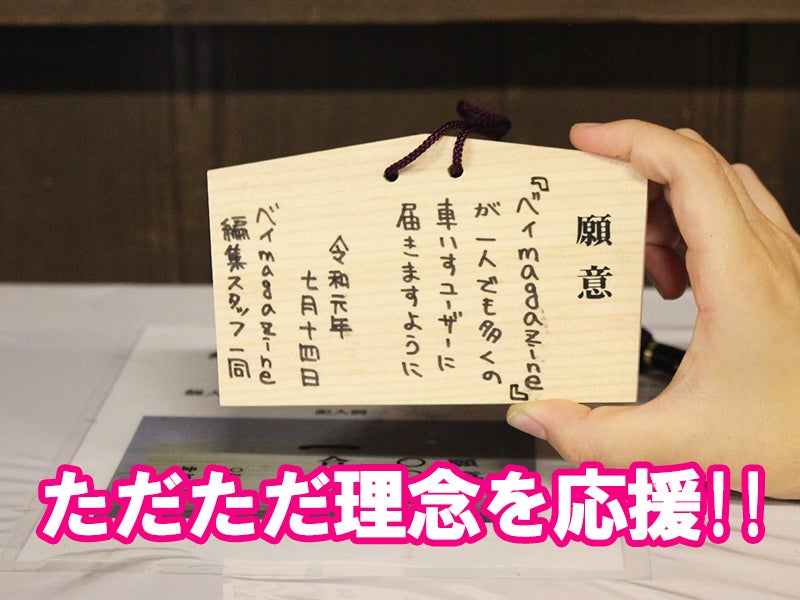 願意
『ベイmagazine』
が一人でも多くの
車いすユーザーに
届きますように
令和元年
七月十四日
ベイmagazine
編集スタッフ一同
ただただ理念を応援!!